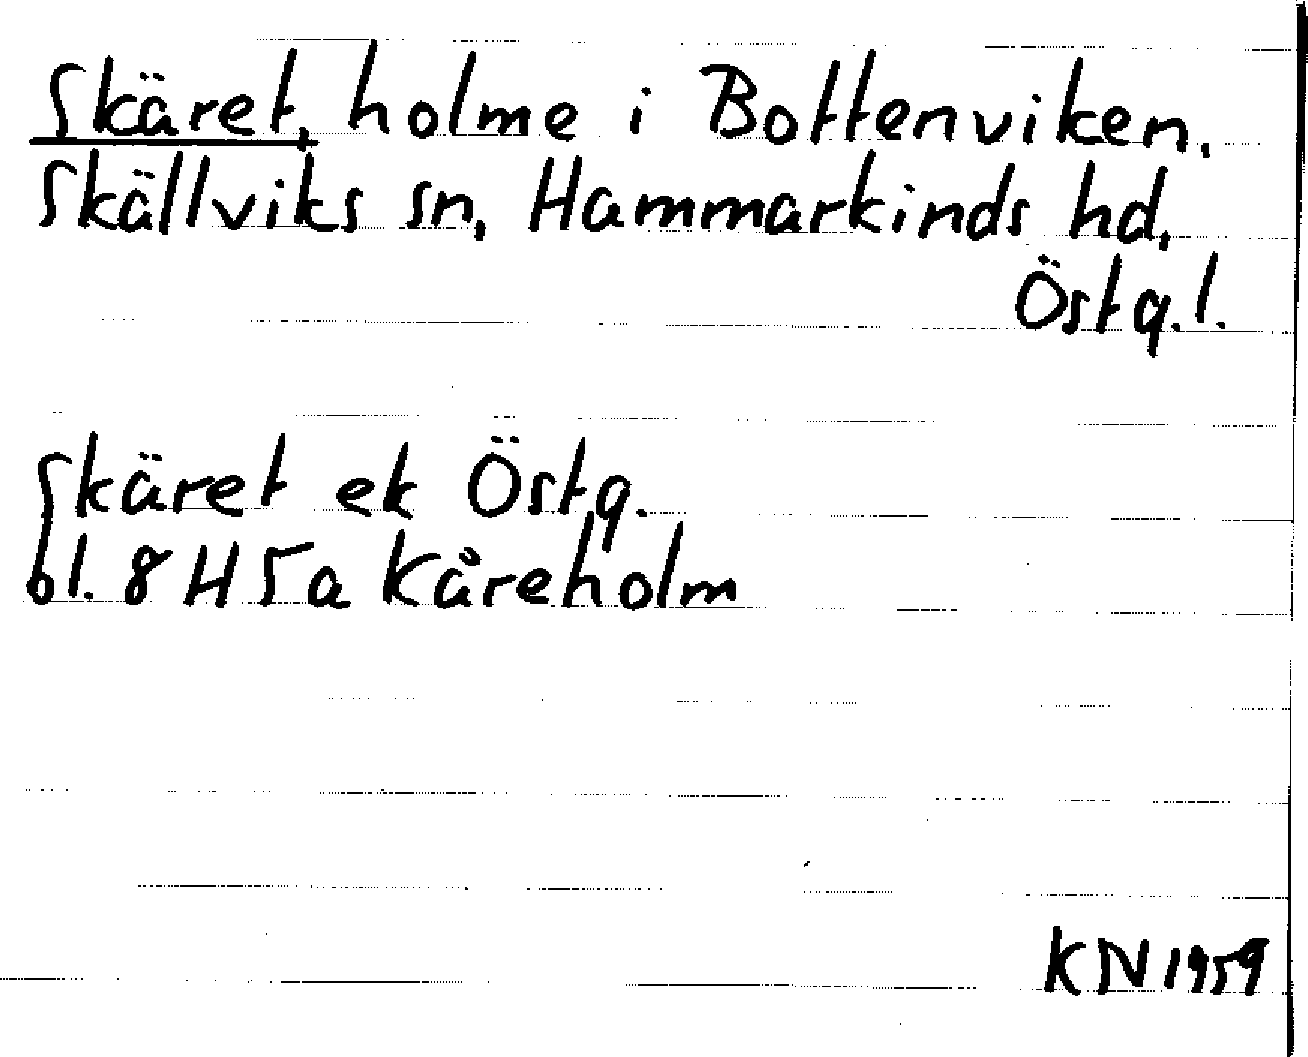 Skäret, holme i Bottenviken,
Skällviks sn, Hammarkinds hd,
Östg.l.
Skäret ek Östg.
bl. 8 H 5a Kåreholm
KN 1959